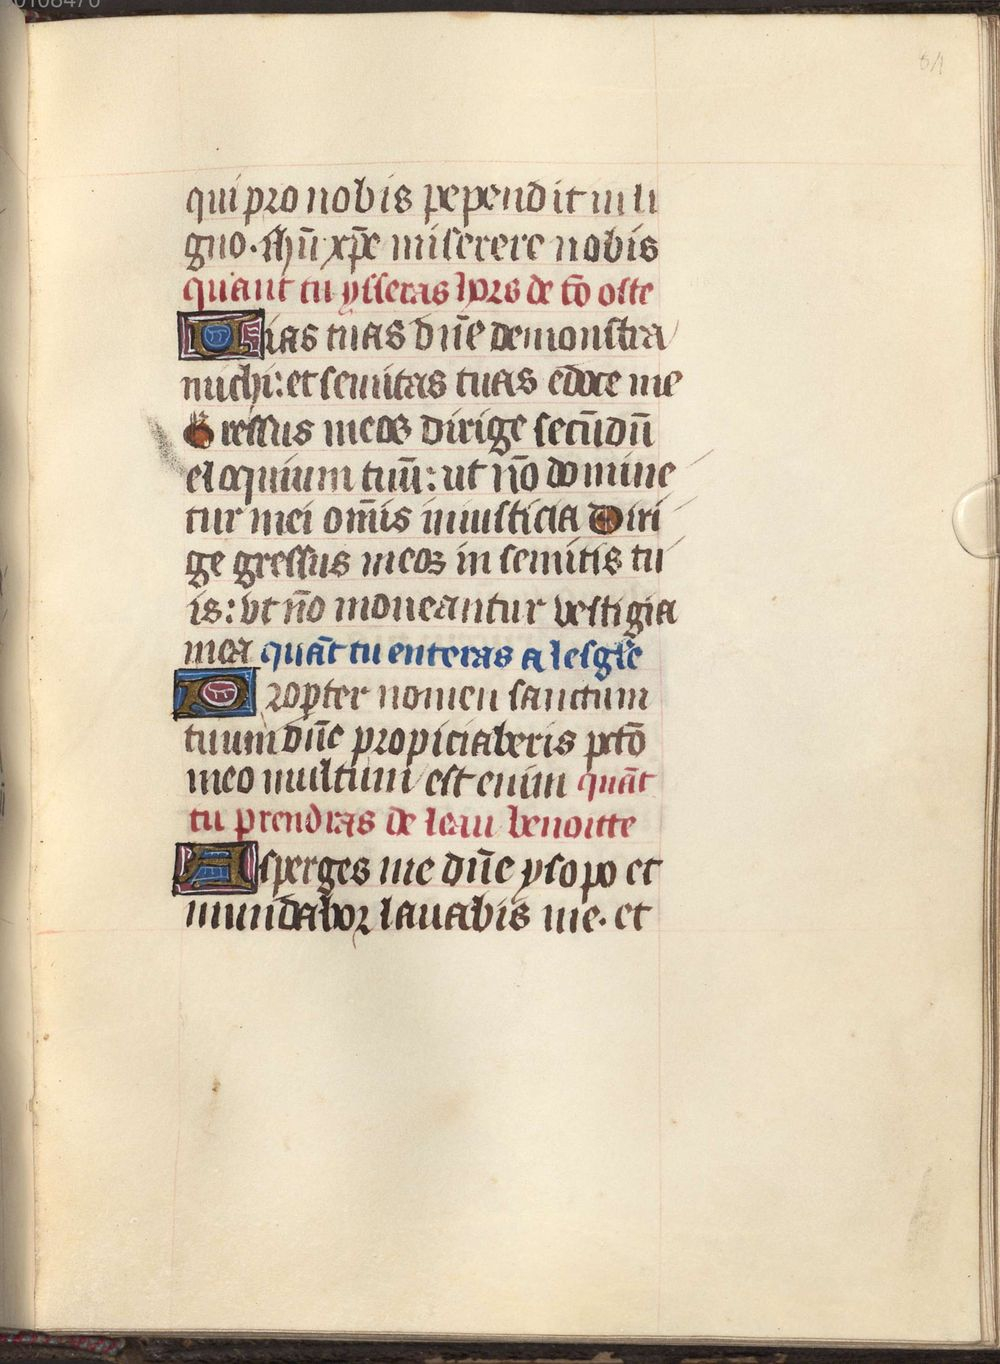 0108470
54
qui pro nobis pependit in li
gno. ihū xp̄e miserere nobis
quant tu ysseras hors de tō oste
Uias tuas dn̄e demonstra
michi: et semitas tuas edoce me
Gressus meos dirige secūdū
eloquium tuū: ut nō domine
tur mei om̄is iniusticia Diri
ge gressus meos in semitis tu
is: vt nō moueantur vestigia
mea quāt tu enteras a lesgle
Propter nomen sanctum
tuum dn̄e propiciaberis pctō
meo multum est enim quāt
tu prendras de leau benoitte
Asperges me dn̄e ysopo et
mundabor lauabis me. et